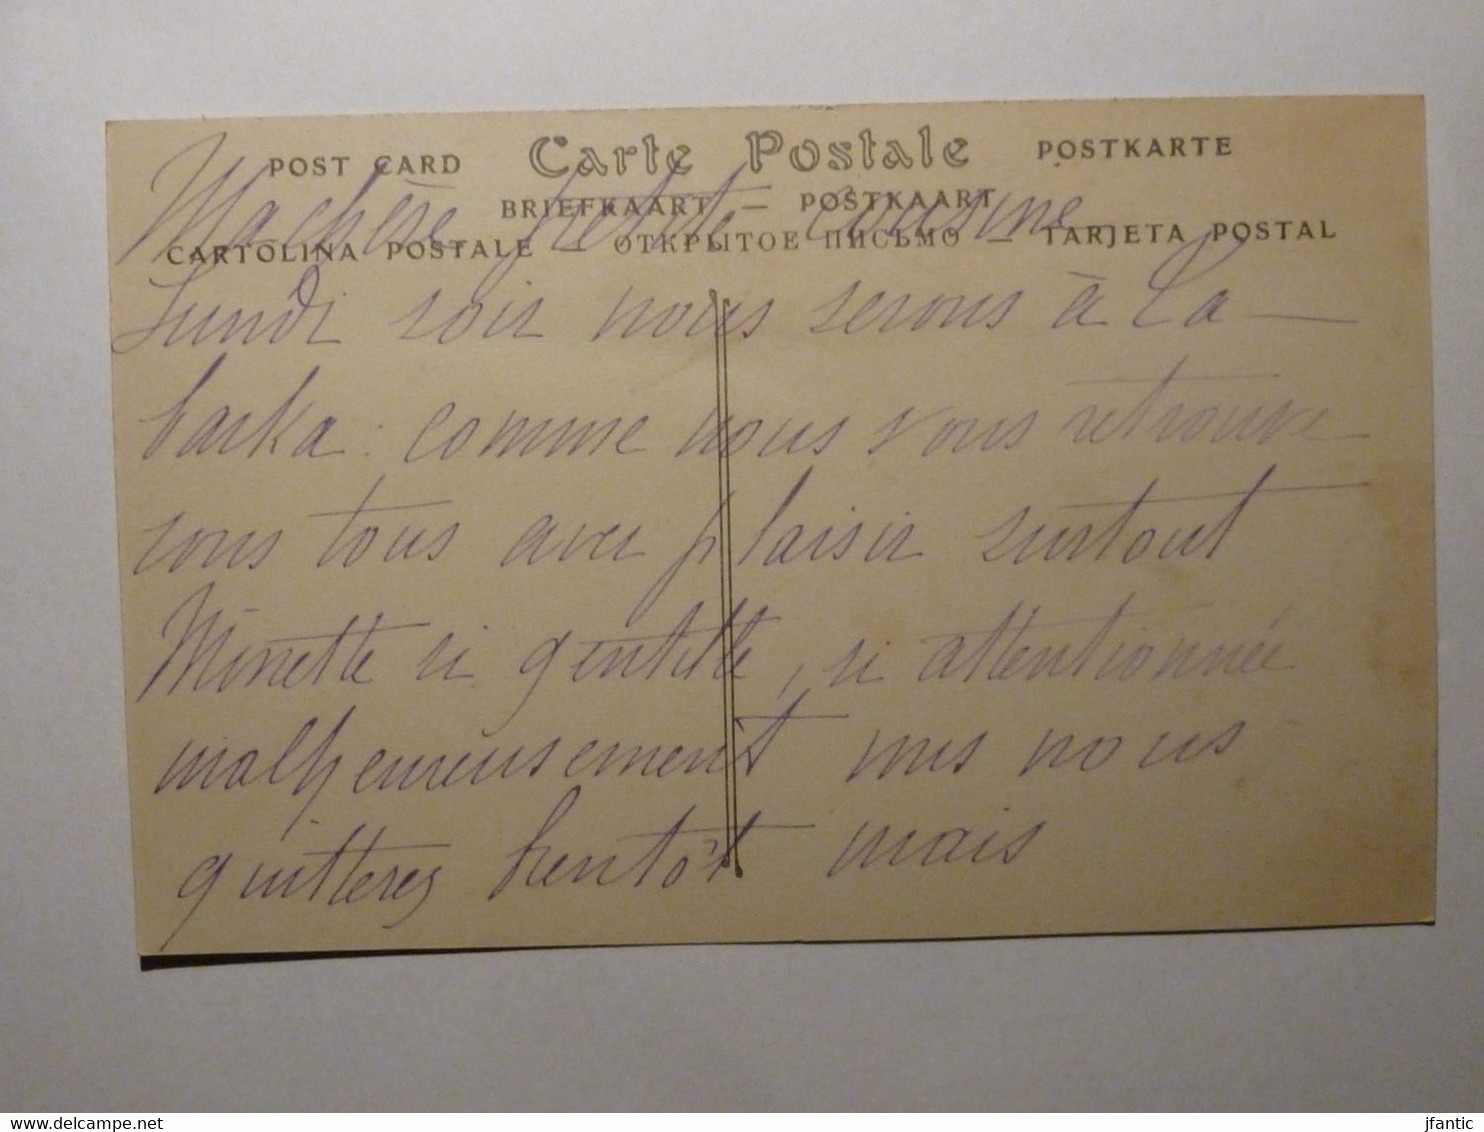 POST CARD Carte Postale POSTKARTE
BRIEFKAART — POSTKAART
CARTOLINA POSTALE — ОТКРЫТОЕ ПИСЬМО — TARJETA POSTAL
Ma chère petite cousine
Lundi soir nous serons à La-
barka : comme nous vous retrouve-
rons tous avec plaisir surtout
Minette si gentille, si attentionnée
malheureusement nous
quitterez bientôt mais
delcampe.net
jfantic